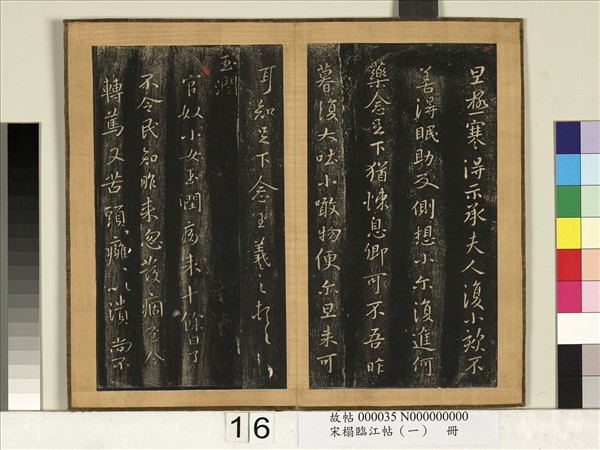 旦極寒得示承夫人復小欬不
善得眠助反側想小尔復進何
藥念足下猶悚息卿可不吾昨
暮復大吐小噉物便尔旦來可
耳知足下念王羲之頓首
玉潤
官奴小女玉潤病來十餘日了
不令民知昨來忽發痼至今
轉篤又苦頭〻癰〻以潰尚不
16
故帖 000035 N000000000
宋搨臨江帖（一） 冊